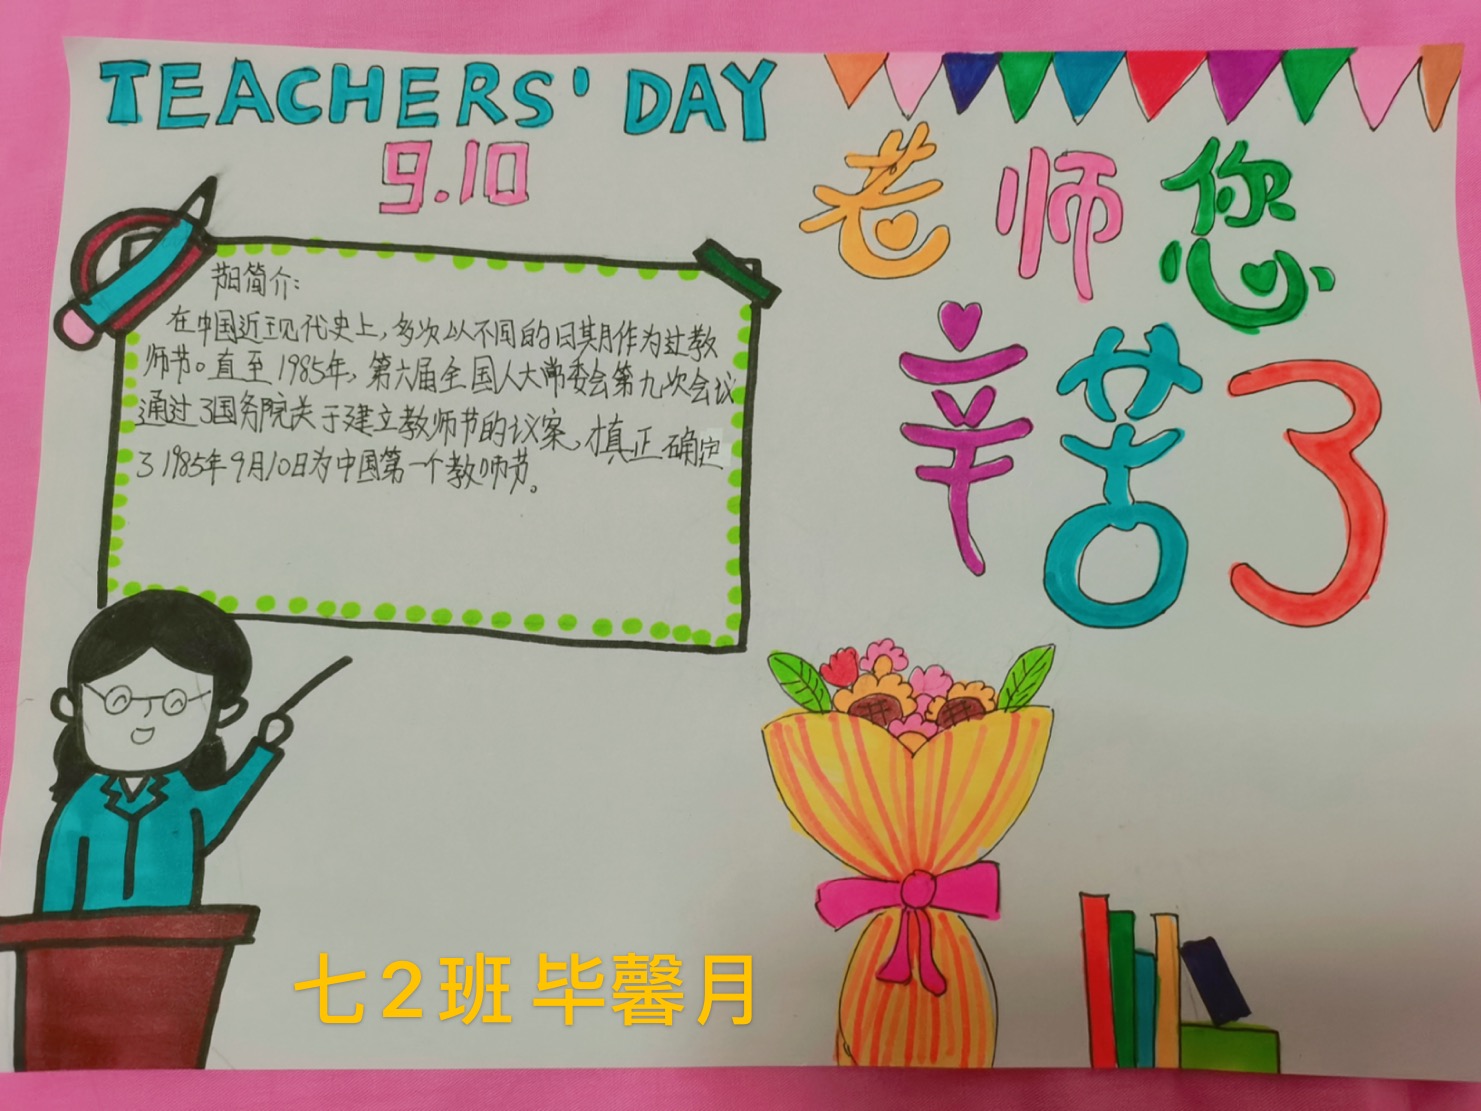 TEACHERS' DAY
9.10
老师您
辛苦了
节日简介:
在中国近现代史上,多次以不同的日期作为过教
师节。直至1985年,第六届全国人大常委会第九次会议
通过了国务院关于建立教师节的议案,才真正确定
了1985年9月10日为中国第一个教师节。
七2班 毕馨月